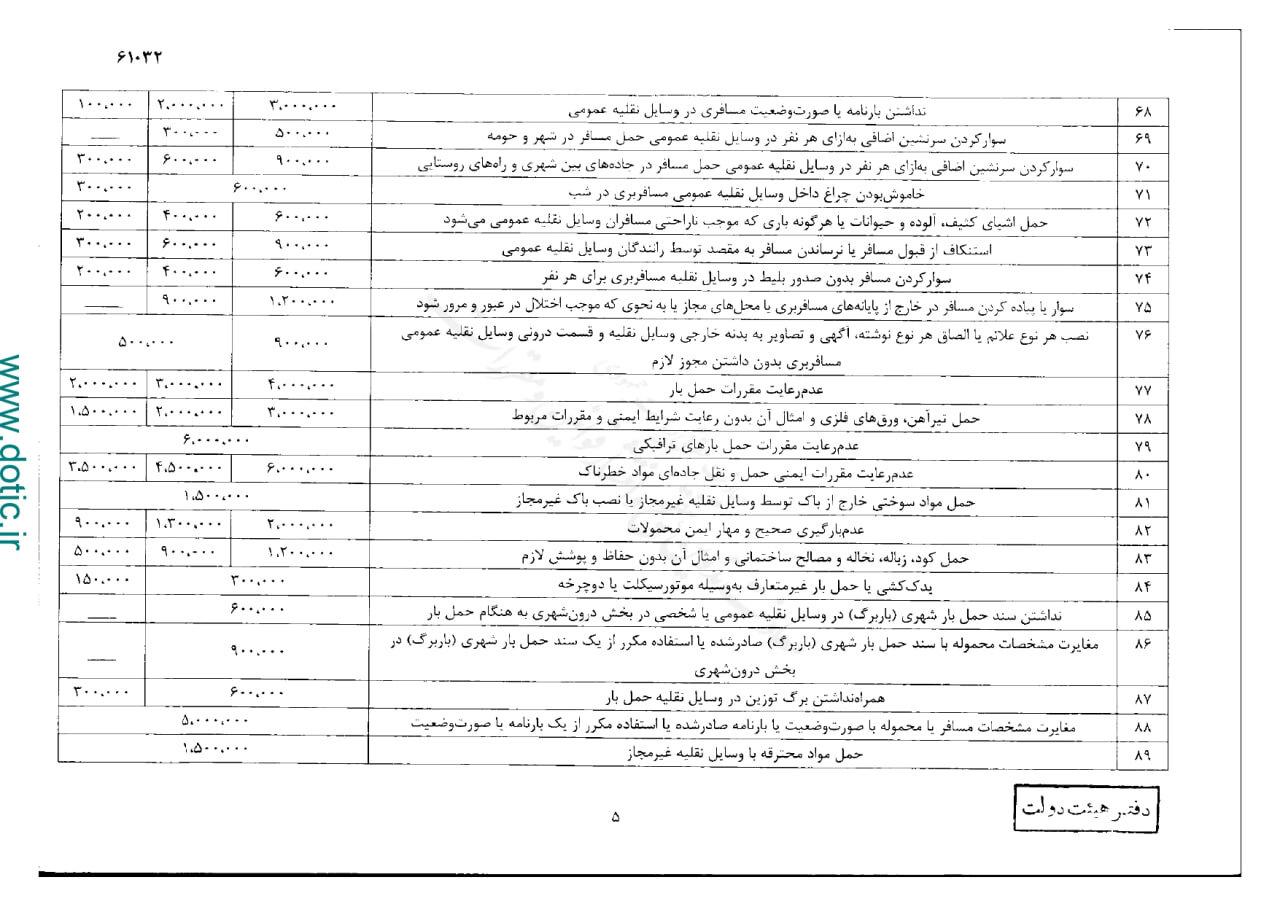 ۶۱۰۳۲
۶۸ نداشتن بارنامه یا صورت‌وضعیت مسافری در وسایل نقلیه عمومی ۳،۰۰۰،۰۰۰ ۲،۰۰۰،۰۰۰ ۱۰۰،۰۰۰
۶۹ سوارکردن سرنشین اضافی به‌ازای هر نفر در وسایل نقلیه عمومی حمل مسافر در شهر و حومه ۵۰۰،۰۰۰ ۳۰۰،۰۰۰ ــــ
۷۰ سوارکردن سرنشین اضافی به‌ازای هر نفر در وسایل نقلیه عمومی حمل مسافر در جاده‌های بین شهری و راه‌های روستایی ۹۰۰،۰۰۰ ۶۰۰،۰۰۰ ۳۰۰،۰۰۰
۷۱ خاموش‌بودن چراغ داخل وسایل نقلیه عمومی مسافربری در شب ۶۰۰،۰۰۰ ۳۰۰،۰۰۰
۷۲ حمل اشیای کثیف، آلوده و حیوانات یا هرگونه باری که موجب ناراحتی مسافران وسایل نقلیه عمومی می‌شود ۶۰۰،۰۰۰ ۴۰۰،۰۰۰ ۲۰۰،۰۰۰
۷۳ استنکاف از قبول مسافر یا نرساندن مسافر به مقصد توسط رانندگان وسایل نقلیه عمومی ۹۰۰،۰۰۰ ۶۰۰،۰۰۰ ۳۰۰،۰۰۰
۷۴ سوارکردن مسافر بدون صدور بلیط در وسایل نقلیه مسافربری برای هر نفر ۶۰۰،۰۰۰ ۴۰۰،۰۰۰ ۲۰۰،۰۰۰
۷۵ سوار یا پیاده کردن مسافر در خارج از پایانه‌های مسافربری یا محل‌های مجاز یا به نحوی که موجب اختلال در عبور و مرور شود ۱،۲۰۰،۰۰۰ ۹۰۰،۰۰۰ ــــ
۷۶ نصب هر نوع علائم یا الصاق هر نوع نوشته، آگهی و تصاویر به بدنه خارجی وسایل نقلیه و قسمت درونی وسایل نقلیه عمومی ۹۰۰،۰۰۰ ۵۰۰،۰۰۰
مسافربری بدون داشتن مجوز لازم
۷۷ عدم‌رعایت مقررات حمل بار ۴،۰۰۰،۰۰۰ ۳،۰۰۰،۰۰۰ ۲،۰۰۰،۰۰۰
۷۸ حمل تیرآهن، ورق‌های فلزی و امثال آن بدون رعایت شرایط ایمنی و مقررات مربوط ۳،۰۰۰،۰۰۰ ۲،۰۰۰،۰۰۰ ۱،۵۰۰،۰۰۰
۷۹ عدم‌رعایت مقررات حمل بارهای ترافیکی ۶،۰۰۰،۰۰۰
۸۰ عدم‌رعایت مقررات ایمنی حمل و نقل جاده‌ای مواد خطرناک ۶،۰۰۰،۰۰۰ ۴،۵۰۰،۰۰۰ ۳،۵۰۰،۰۰۰
۸۱ حمل مواد سوختی خارج از باک توسط وسایل نقلیه غیرمجاز یا نصب باک غیرمجاز ۱،۵۰۰،۰۰۰
۸۲ عدم‌بارگیری صحیح و مهار ایمن محمولات ۲،۰۰۰،۰۰۰ ۱،۳۰۰،۰۰۰ ۹۰۰،۰۰۰
۸۳ حمل کود، زباله، نخاله و مصالح ساختمانی و امثال آن بدون حفاظ و پوشش لازم ۱،۲۰۰،۰۰۰ ۹۰۰،۰۰۰ ۵۰۰،۰۰۰
۸۴ یدک‌کشی یا حمل بار غیرمتعارف به‌وسیله موتورسیکلت یا دوچرخه ۳۰۰،۰۰۰ ۱۵۰،۰۰۰
۸۵ نداشتن سند حمل بار شهری (باربرگ) در وسایل نقلیه عمومی یا شخصی در بخش درون‌شهری به هنگام حمل بار ۶۰۰،۰۰۰ ــــ
۸۶ مغایرت مشخصات محموله با سند حمل بار شهری (باربرگ) صادرشده یا استفاده مکرر از یک سند حمل بار شهری (باربرگ) در ۹۰۰،۰۰۰ ــــ
بخش درون‌شهری
۸۷ همراه‌نداشتن برگ توزین در وسایل نقلیه حمل بار ۶۰۰،۰۰۰ ۳۰۰،۰۰۰
۸۸ مغایرت مشخصات مسافر یا محموله با صورت‌وضعیت یا بارنامه صادرشده یا استفاده مکرر از یک بارنامه یا صورت‌وضعیت ۵،۰۰۰،۰۰۰
۸۹ حمل مواد محترقه با وسایل نقلیه غیرمجاز ۱،۵۰۰،۰۰۰
دفتر هیئت دولت
۵
www.dotic.ir